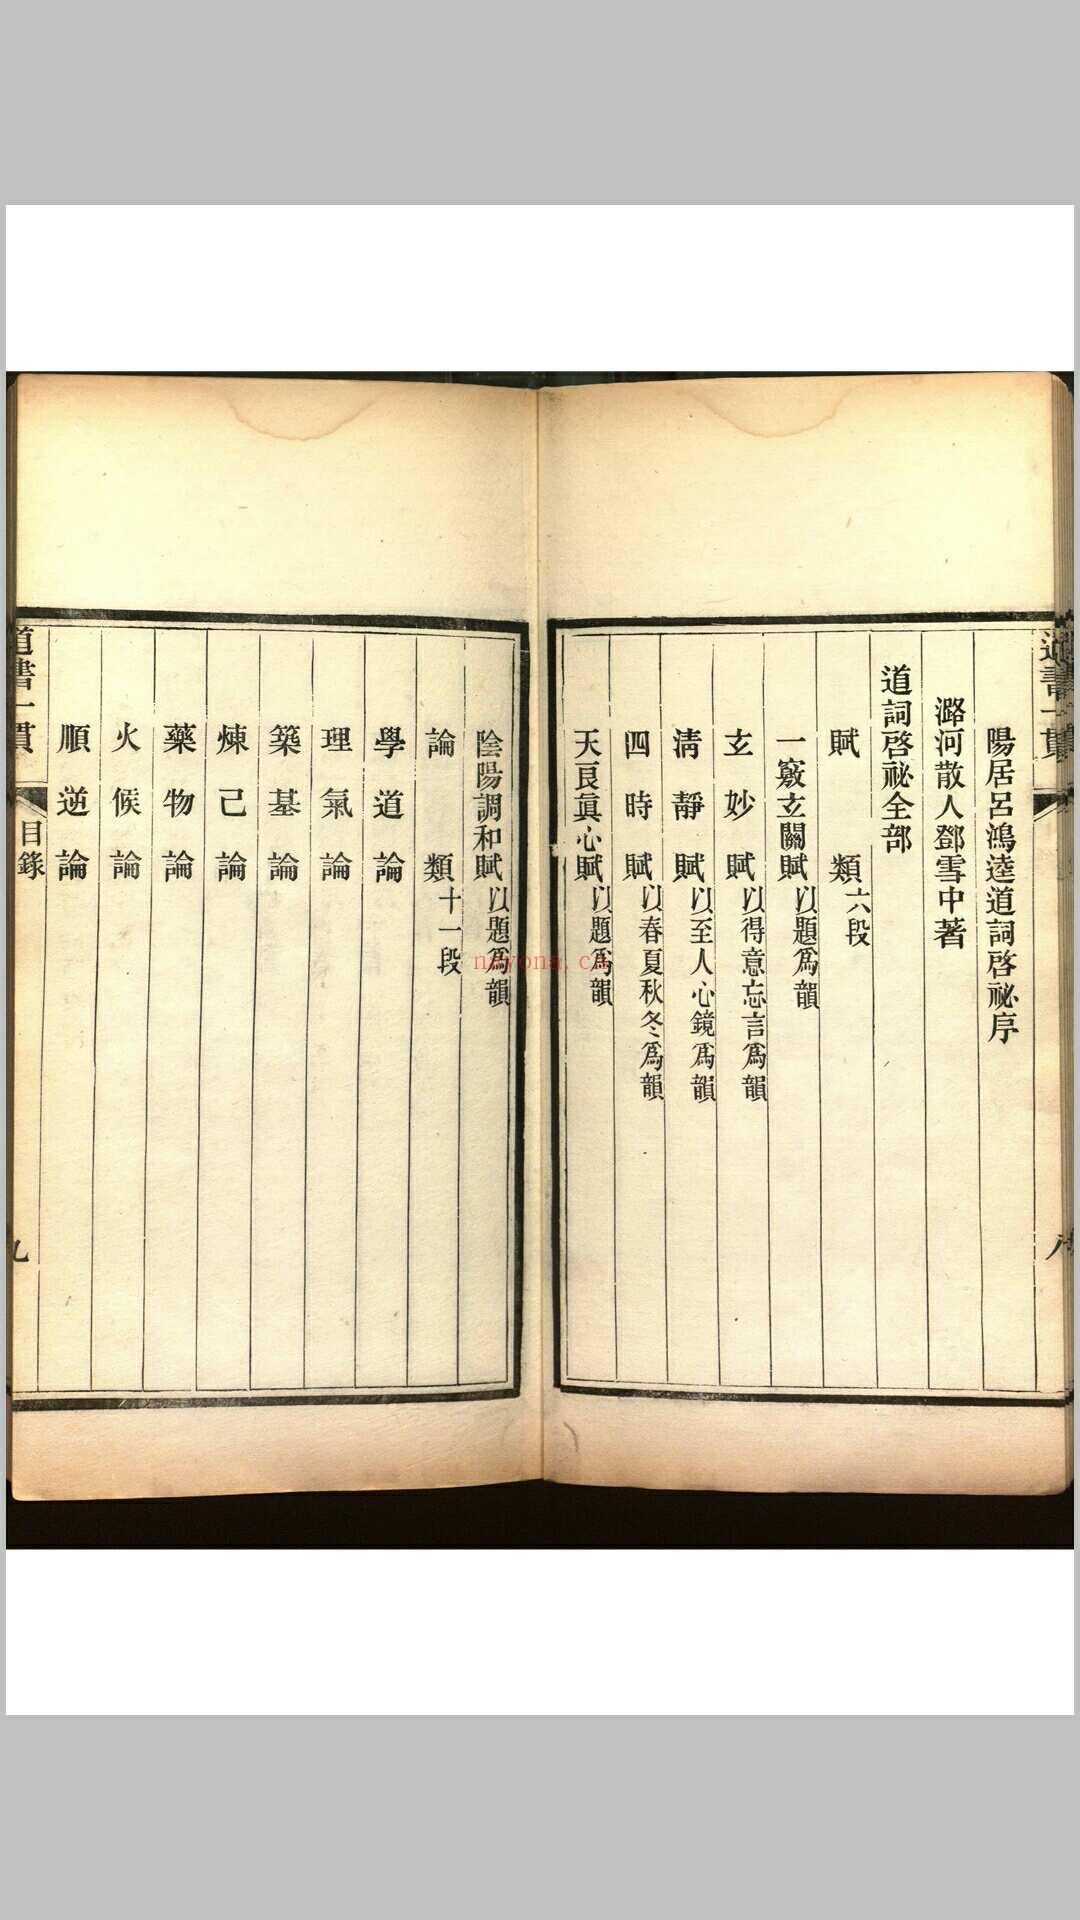 陽居呂鴻逵道詞啓祕序
潞河散人鄧雪中著
道詞啓祕全部
賦類六段
一竅玄關賦以題爲韻
玄妙賦以得意忘言爲韻
淸靜賦以至人心鏡爲韻
四時賦以春夏秋冬爲韻
天良眞心賦以題爲韻
陰陽調和賦以題爲韻
論類十一段
學道論
理氣論
築基論
煉己論
藥物論
火候論
順逆論
道書一貫 目錄 九
nayona.cn